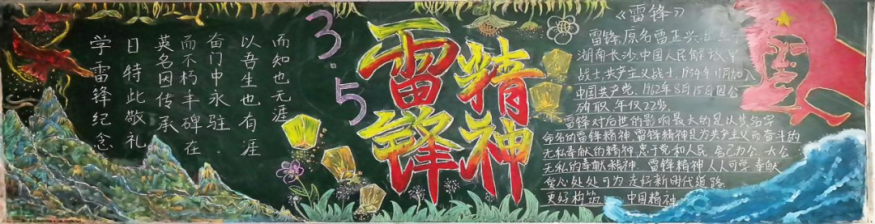 学雷锋纪念
日特此敬礼
英名因传承
而不朽丰碑在
奋鬥中永驻
以吾生也有涯
而知也无涯
3.5
雷锋
精神
《雷锋》
雷锋,原名雷正兴
湖南长沙,中国人民解放军
战士,共产主义战士,
中国共产党,1962年8月15日因公
殉职,年仅22岁。
雷锋对后世的影响最大的是以其名字
命名的雷锋精神,雷锋精神是为共产主义而奋斗的
无私奉献的精神,忠于党和人民、舍己为公、大公
无私的奉献精神 雷锋精神,人人可学,奉献
爱心,处处可为,走好新时代道路
更好构筑 中国精神